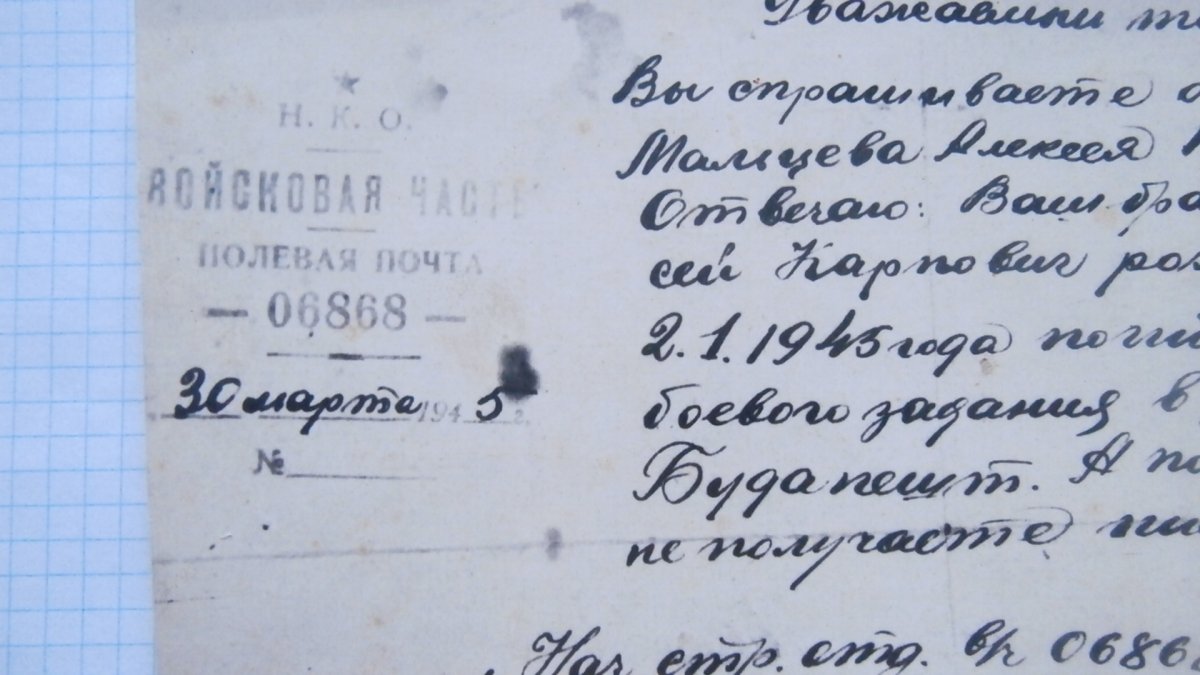 Н. К. О.
ВОЙСКОВАЯ ЧАСТЬ
ПОЛЕВАЯ ПОЧТА
— 06868 —
30 марта 1945 г.
№
Уважаемый т
Вы спрашиваете о
Мальцева Алексея К
Отвечаю: Ваш бра
сей Карпович ро
2.1.1945 года поги
боевого задания в
Будапешт. А по
не получаете пи
Нач стр. отд. в/ч 0686